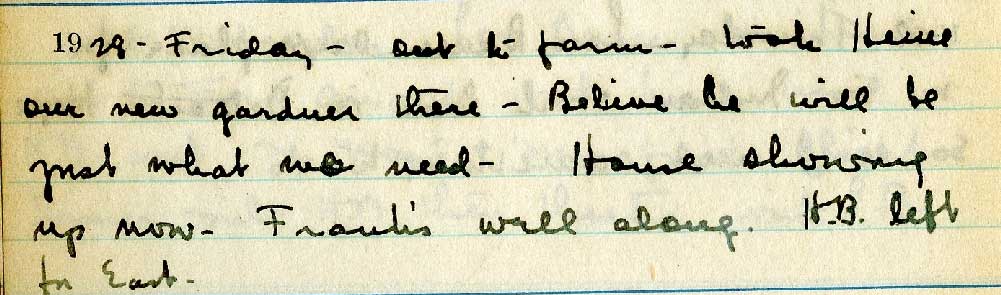 1929 - Friday - out to farm - took Heine
our new gardner there - Believe he will be
just what we need - House showing
up now - Frank's well along. H.B. left
for East -